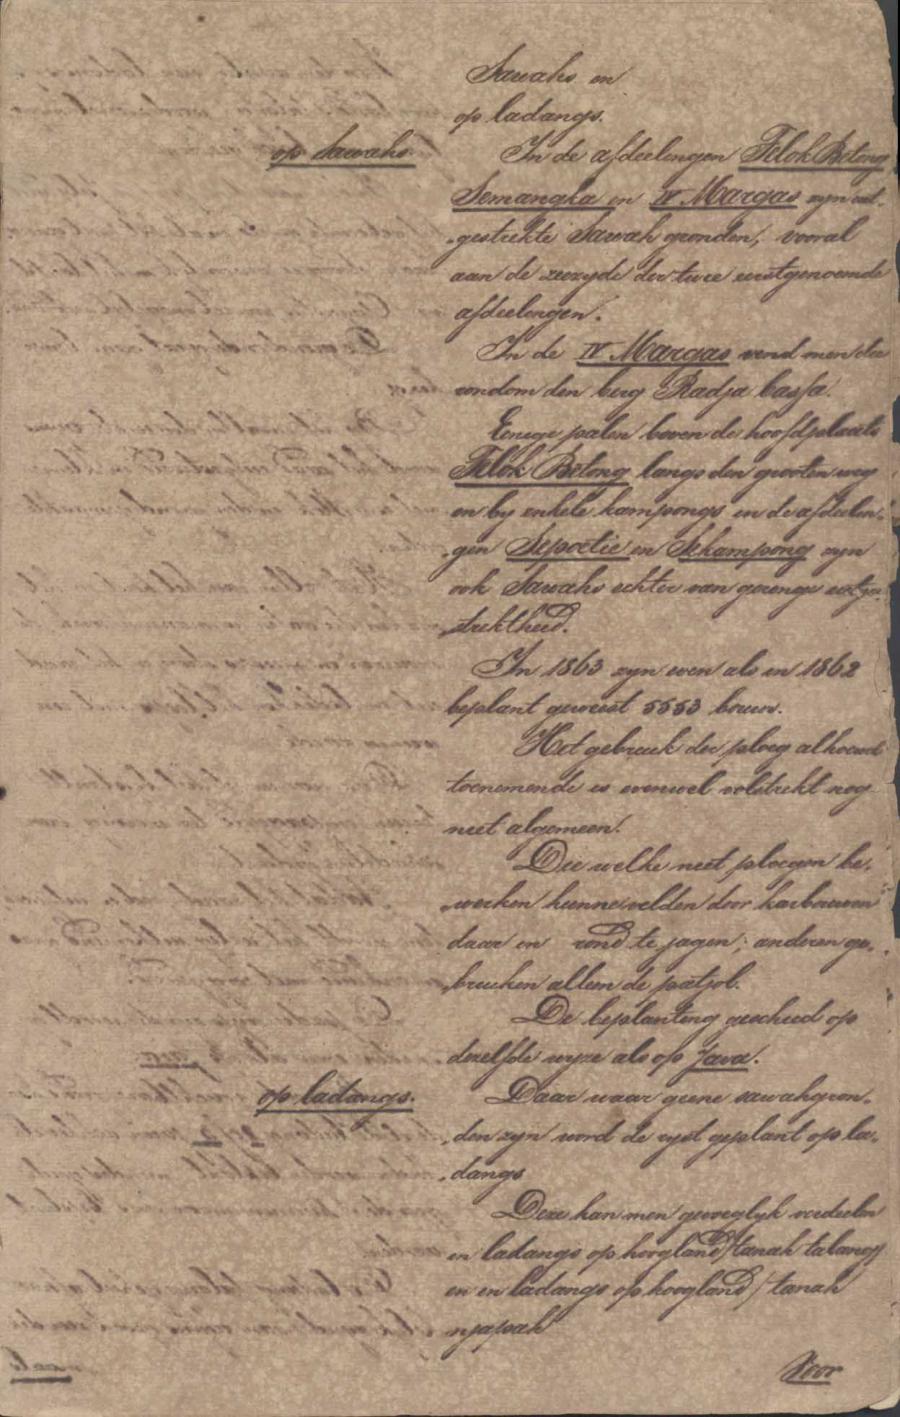 Sawahs en
op ladangs.
op Sawahs.
In de afdeelingen Telok Betong
Semangka en IV Margas zyn uit-
gestrekte Sawah gronden, vooral
aan de zeezyde der twee eerstgenoemde
afdeelingen.
In de IV Margas vend men die
rondom den berg Radja bassa.
Eenige palen boven de hoofdplaats
Telok Betong langs den grooten weg
en by enkele kampongs in de afdeelin-
gen Sepoetie en Sekampong zyn
ook Sawahs echter van geringe uitge-
strektheid.
In 1863 zyn even als in 1862
beplant geweest 5553 bouws.
Het gebruik der ploeg alhoewel
toenemende is evenwel volstrekt nog
niet algemeen.
Die welke niet ploegen be-
werken hunne velden door karbouwen
daar in rond te jagen; anderen ge-
bruiken alleen de patjol.
De beplanting geschied op
dezelfde wyze als op Java.
op ladangs.
Daar waar geene sawahgron-
den zyn word de ryst geplant op la-
dangs
Deze kan men gevoeglyk verdeelen
in ladangs op hoogland / tanah talang/
en in ladangs op hoogland / tanah
njapah
Voor